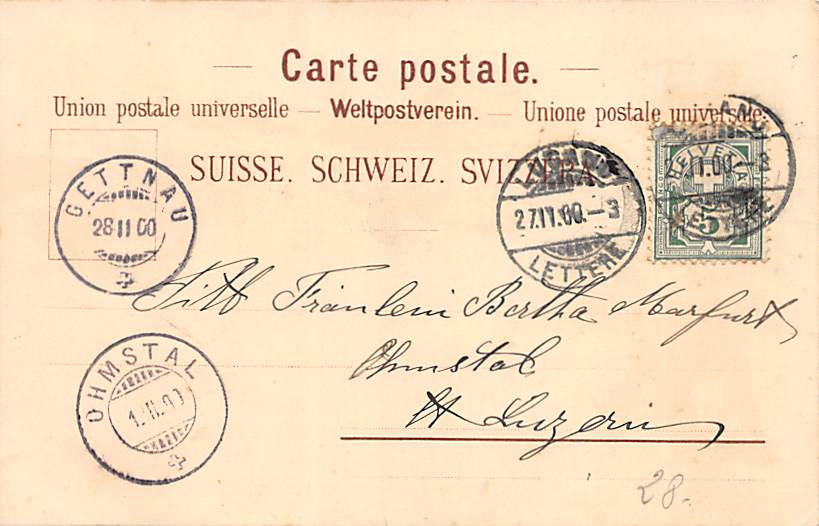 Carte postale.
Union postale universelle — Weltpostverein. — Unione postale universale.
SUISSE. SCHWEIZ. SVIZZERA.
GETTNAU
28 II 00
LUGANO
27.II.00.–3
LETTERE
HELVETIA
5
Fräulein Bertha Marfurt
Ohmstal
Kt Luzern
OHMSTAL
28.